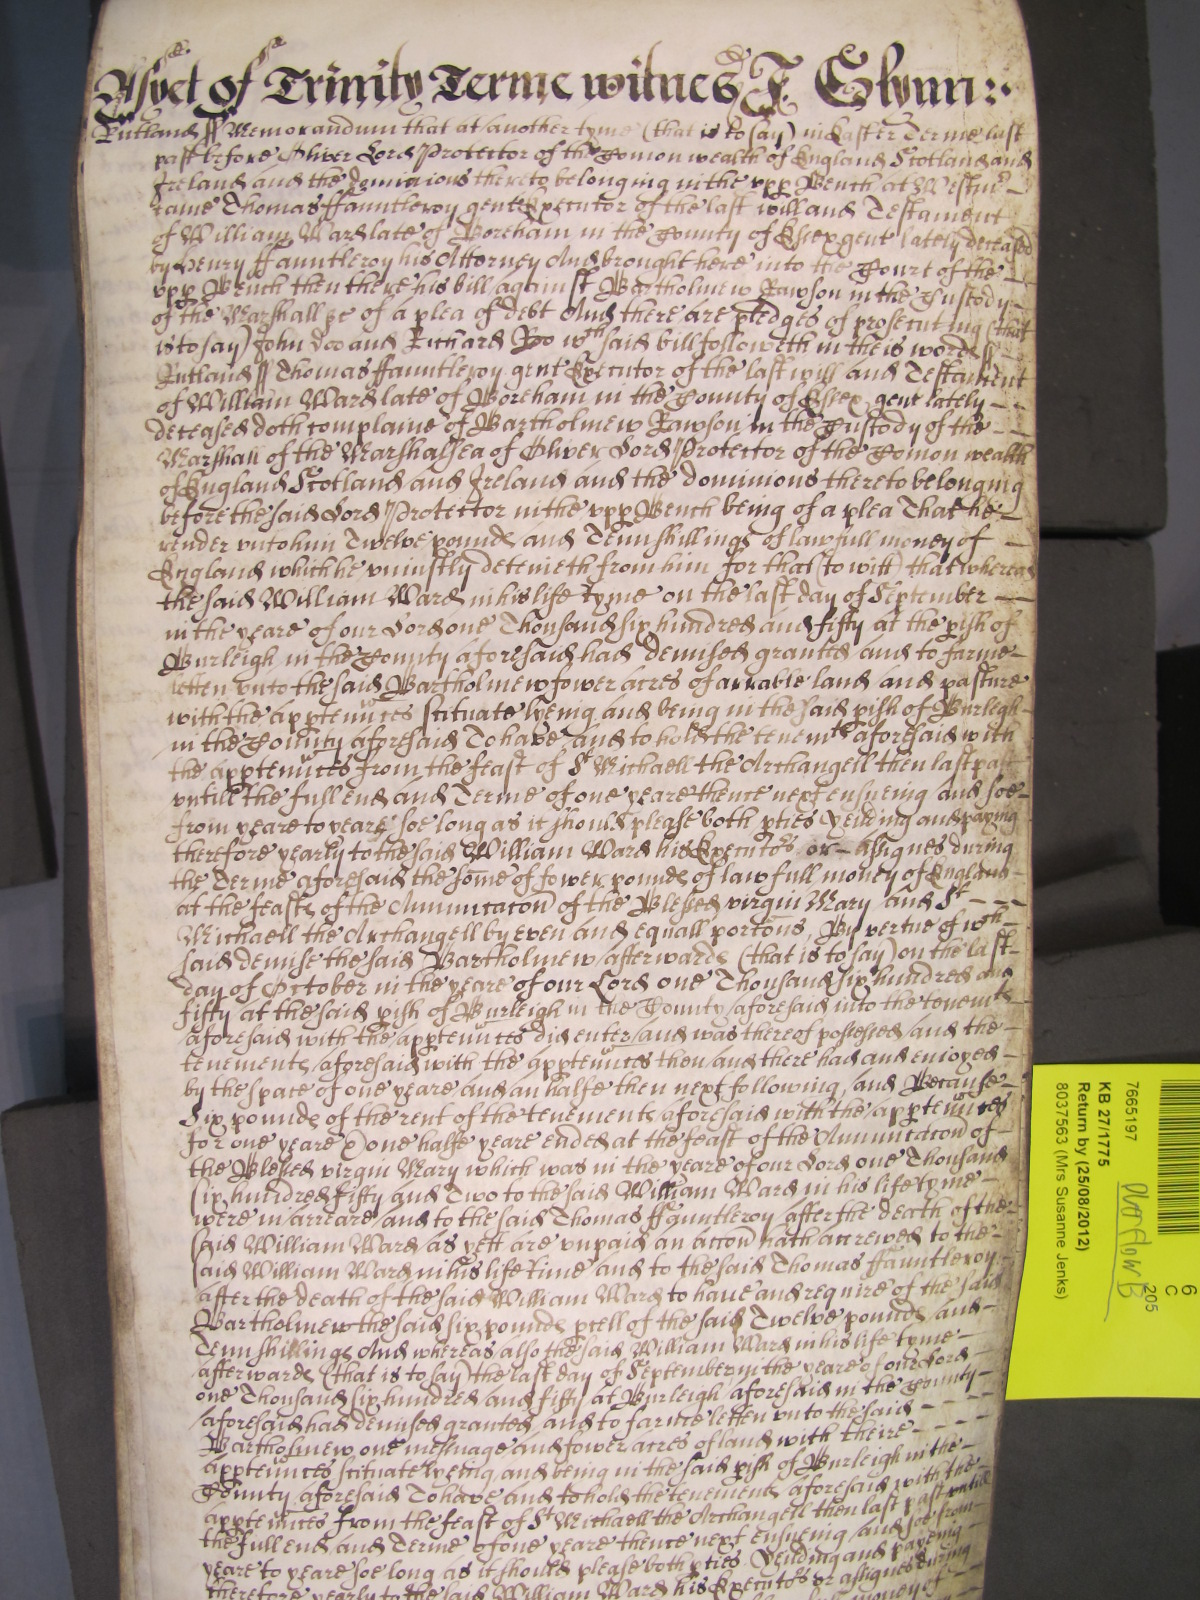 As yet of Trinity Terme witnes J. Glynn
Rutland ss Memorandum that at another tyme (that is to say) in Easter Terme last
past before Oliver Lord Protector of the Comon wealth of England Scotland and
Ireland and the dominions thereto belonging in the vpp Bench at Westmr
came Thomas ffauntleroy gent Executor of the last will and Testament
of William Ward late of Boreham in the County of Essex gent lately deceased
by Henry ffauntleroy his Attorney And brought here into the Court of the
vpp Bench then there his bill against Bartholmew Rawson in the Custody
of the Marshall &c of a plea of debt And there are pledges of prosecuting (that
is to say) John Doo and Richard Roo wch said bill followeth in theis words ss
Rutland ss Thomas ffauntleroy gent Executor of the last will and Testament
of William Ward late of Boreham in the County of Essex gent lately
deceased doth complaine of Bartholmew Rawson in the Custody of the
Marshall of the Marshalsea of Oliver Lord Protector of the Comon wealth
of England Scotland and Ireland and the dominions thereto belonging
before the said Lord Protector in the vpp Bench being of a plea That he
render vnto him Twelve pounds and Tenn shillings of lawfull money of
England which he vniustly deteineth from him for that (to witt) that whereas
the said William Ward in his life tyme on the last day of September
in the yeare of our Lord one Thousand six hundred and fifty at the pish of
Burleigh in the County aforesaid had demised granted and to farme
letten vnto the said Bartholmew fower acres of arrable land and pasture
with the apptennces scituate lyeing and being in the said pish of Burleigh
in the County aforesaid To have and to hold the tenemts aforesaid with
the apptennces from the feast of St Michaell the Archangell then last past
vntill the full end and Terme of one yeare thence next ensueing and soe
from yeare to yeare soe long as it should please both pties Yeilding and paying
therefore yearly to the said William Ward his Executors or assignes during
the Terme aforesaid the some of fower pounds of lawfull money of England
at the feasts of the Annuncacon of the Blessed virgin Mary and St
Michaell the Archangell by even and equall portons By vertue of wch
said demise the said Bartholmew afterwards (that is to say) on the last
day of October in the yeare of our Lord one Thousand six hundred and
fifty at the said pish of Burleigh in the County aforesaid into the tenemts
aforesaid with the apptennces did enter and was thereof possessed and the
tenements aforesaid with the apptennces then and there had and enioyed
by the space of one yeare and an halfe then next following and Because
Six pounds of the rent of the tenements aforesaid with the apptennces
for one yeare & one halfe yeare ended at the feast of the Annuncacon of
the Blessed virgin Mary which was in the yeare of our Lord one Thousand
six hundred fifty and Two to the said William Ward in his life tyme
were in arreare and to the said Thomas ffauntleroy after the death of the
said William Ward as yett are vnpaid an accon hath accrewed to the
said William Ward in his life time and to the said Thomas ffauntleroy
after the death of the said William Ward to have and require of the said
Bartholmew the said six pounds pcell of the said Twelve pounds and
Tenn shillings And whereas also the said William Ward in his life tyme
afterwards (that is to say) the last day of September in the yeare of our Lord
one Thousand six hundred and fifty at Burleigh aforesaid in the County
aforesaid had demised granted and to farme letten vnto the said
Bartholmew one messuage and fower acres of land with theire
apptennces scituate lyeing and being in the said pish of Burleigh in the
County aforesaid To have and to hold the tenements aforesaid with the
apptennces from the feast of St Michaell the Archangell then last past vntill
the full end and Terme of one yeare thence next ensueing and soe from
yeare to yeare soe long as it should please both pties Yeilding and payeing
therefore yearly to the said William Ward his Executors or assignes during
money of
7665197
KB 27/1775
Return by (25/08/2012)
8037563 (Mrs Susanne Jenks)
Overflow B
205
C
6